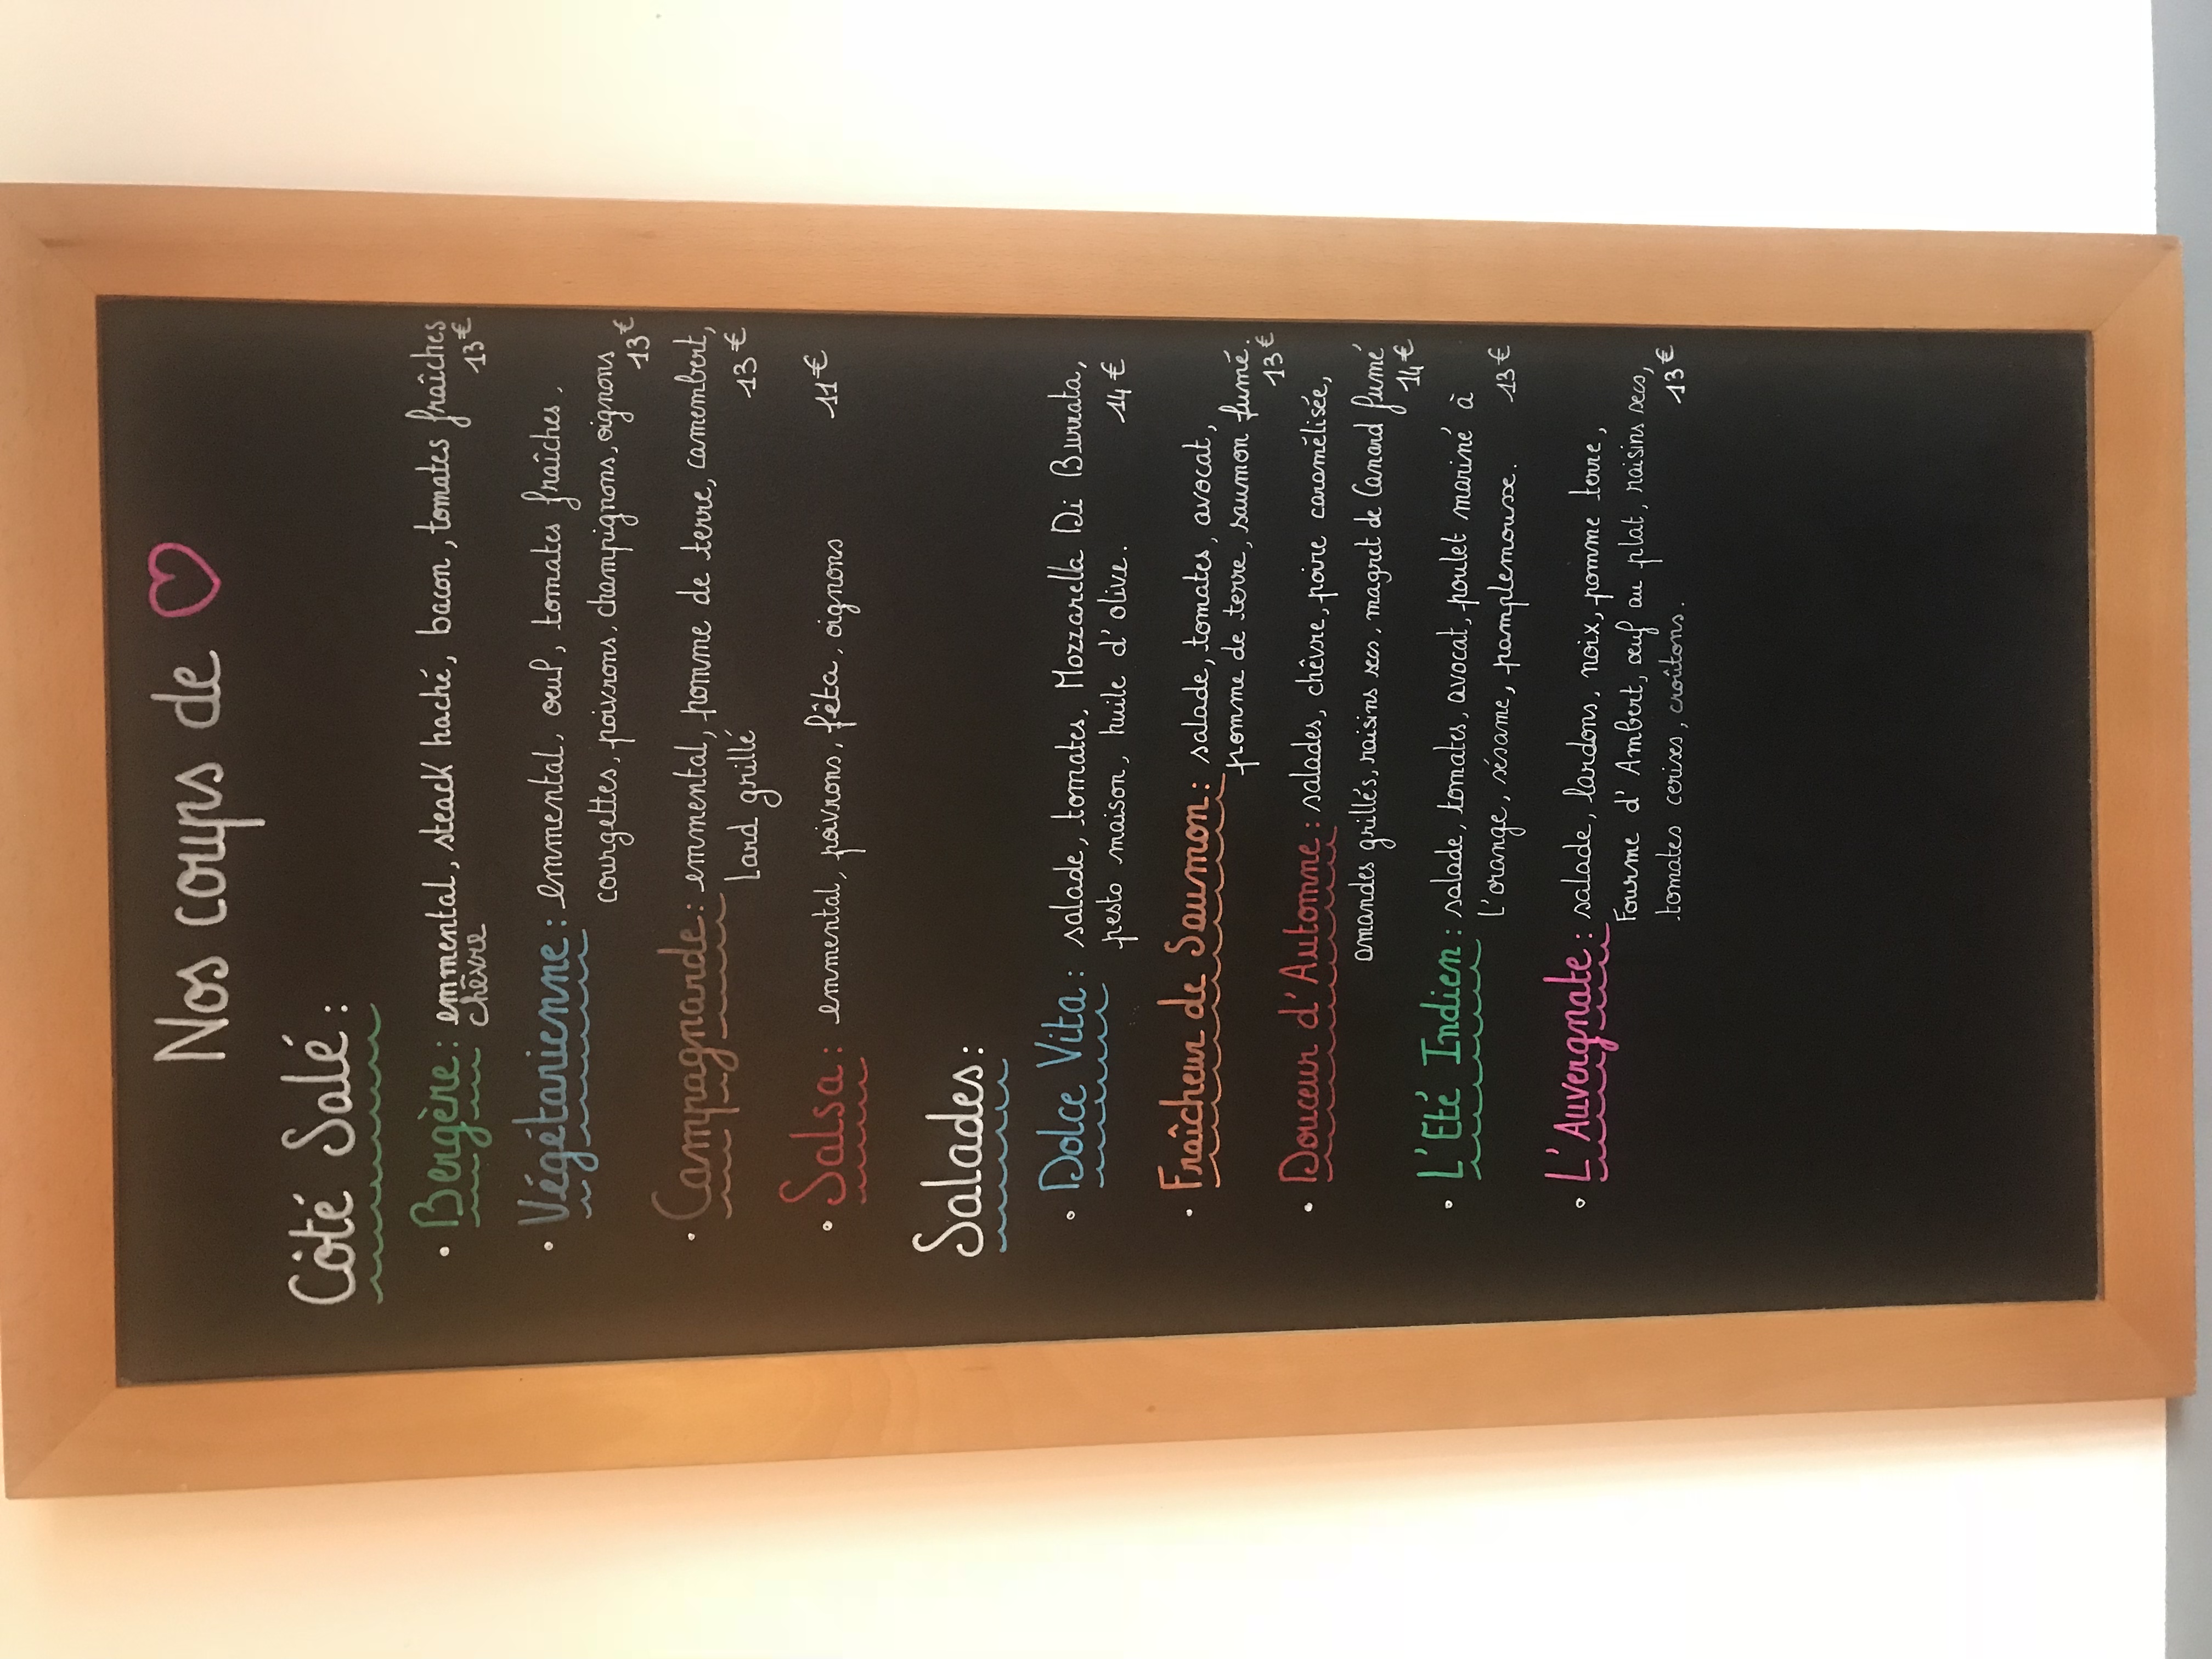 Nos coups de
Côté Salé :
• Bergère : emmental, steack haché, bacon, tomates fraîches
chêvre 13€
• Végétarienne : emmental, oeuf, tomates fraîches,
courgettes, poivrons, champignons, oignons
13€
• Campagnarde : emmental, pomme de terre, camembert,
Lard grillé 13€
• Salsa : emmental, poivrons, fêta, oignons 11€
Salades :
• Dolce Vita : salade, tomates, Mozzarella Di Burrata,
pesto maison, huile d'olive. 14€
• Fraîcheur de Saumon : salade, tomates, avocat,
pomme de terre, saumon fumé.
13€
• Douceur d'Automne : salades, chêvre, poire caramélisée,
amandes grillés, raisins secs, magret de Canard fumé
14€
• L'Eté Indien : salade, tomates, avocat, poulet mariné à
l'orange, sésame, pamplemousse. 13€
• L'Auvergnate : salade, lardons, noix, pomme terre,
Fourme d'Ambert, œuf au plat, raisins secs,
tomates cerises, croûtons. 13€